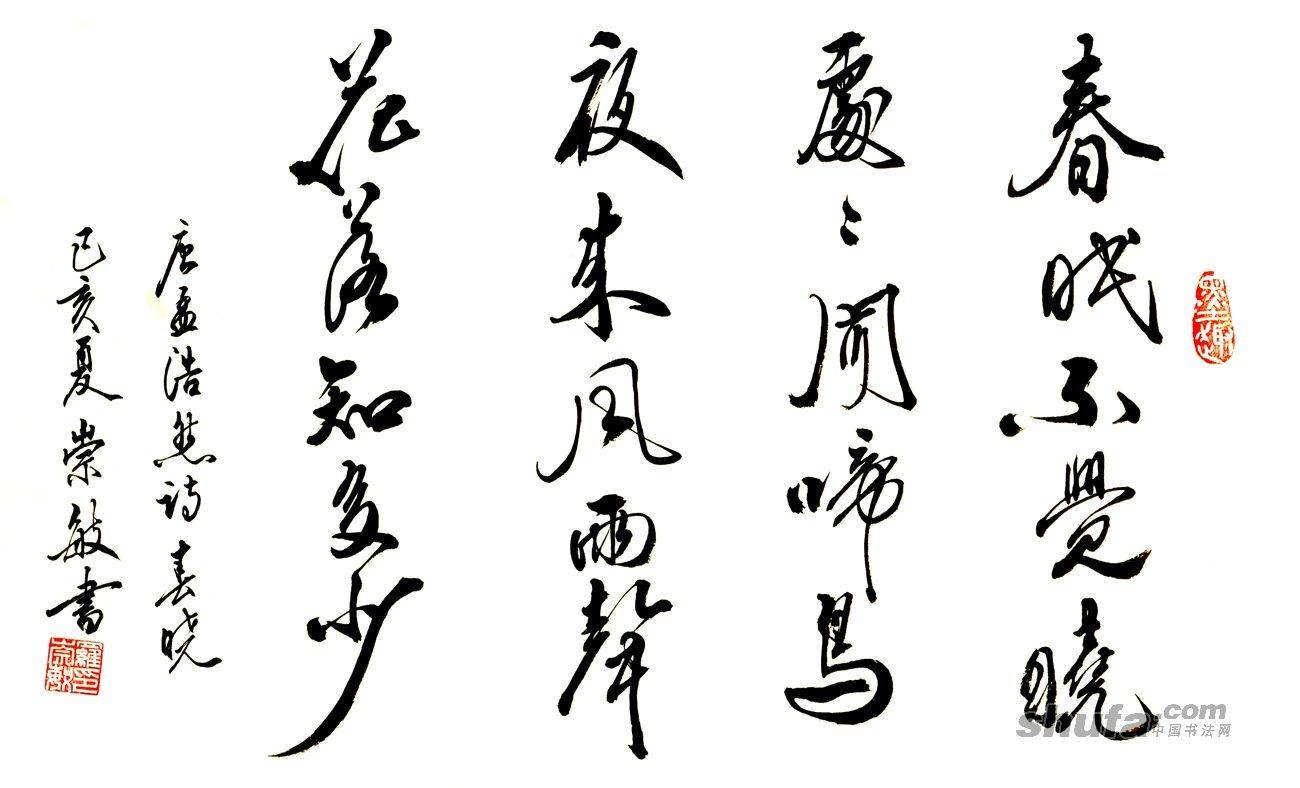 春眠不覺曉
處〻聞啼鳥
夜来風雨聲
花落知多少
唐孟浩然诗春晓
己亥夏崇敏書
墨趣
羅印崇敏
shufa.com
中国书法网